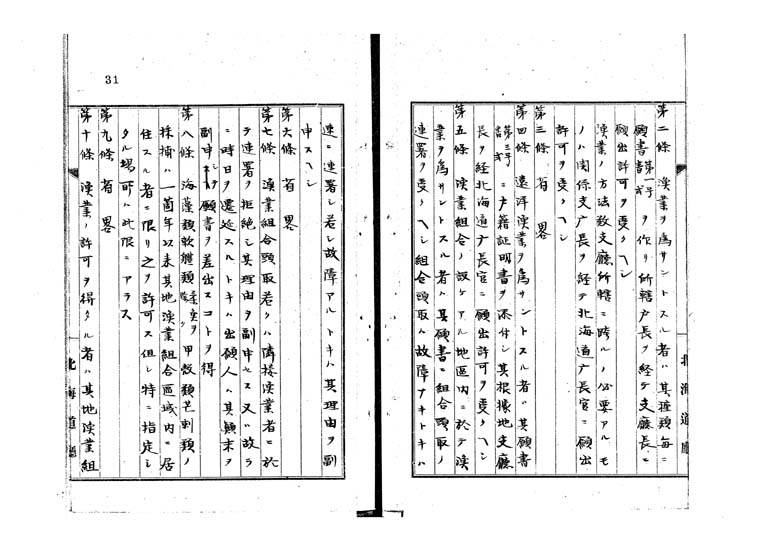 31
第二條 漁業ヲ爲サントスル者ハ其種類毎ニ
願書第一号書式ヲ作リ所轄戸長ヲ經テ支廳長ニ
願出許可ヲ受クヘシ
漁業ノ方法数支廳所轄ニ跨ルノ必要アルモ
ノハ関係支庁長ヲ経テ北海道庁長官ニ願出
許可ヲ受クヘシ
第三條 省畧
第四條 遠洋漁業ヲ爲サントスル者ハ其願書
第三号書式ニ戸籍証明書ヲ添付シ其根據地支廳
長ヲ経北海道庁長官ニ願出許可ヲ受クヘシ
第五條 漁業組合ノ設ケアル地區内ニ於テ漁
業ヲ爲サントスル者ハ其願書ニ組合頭取ノ
連署ヲ受クヘシ組合頭取ハ故障ナキトキハ
速ニ連署シ若シ故障アルトキハ其理由ヲ副
申スヘシ
第六條 省畧
第七條 漁業組合頭取若クハ隣接漁業者ニ於
テ連署ヲ拒絶シ其理由ヲ副申セス又ハ故ラ
ニ時日ヲ遷延スルトキハ出願人ハ其顛末ヲ
副申シ願書ヲ差出スコトヲ得
第八條 海藻類軟體類 甲殻類芒刺類ノ
採捕ハ一箇年以来其地漁業組合區域内ニ居
住スル者ニ限リ之ヲ許可ス但シ特ニ指定シ
タル場所ハ此限ニアラス
第九條 省畧
第十條 漁業ノ許可ヲ得タル者ハ其地漁業組
北海道廳
北海道廳